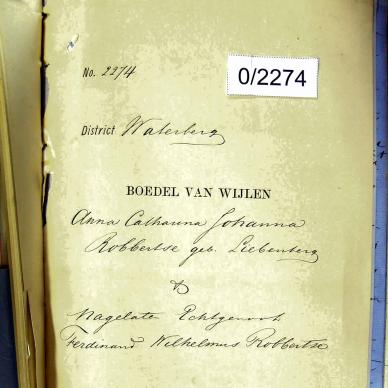 No. 2274
0/2274
District Waterberg
BOEDEL VAN WIJLEN
Anna Catharina Johanna
Robbertse geb. Liebenberg
&
nagelate Echtgenoot
Ferdinand Wilhelmus Robbertse